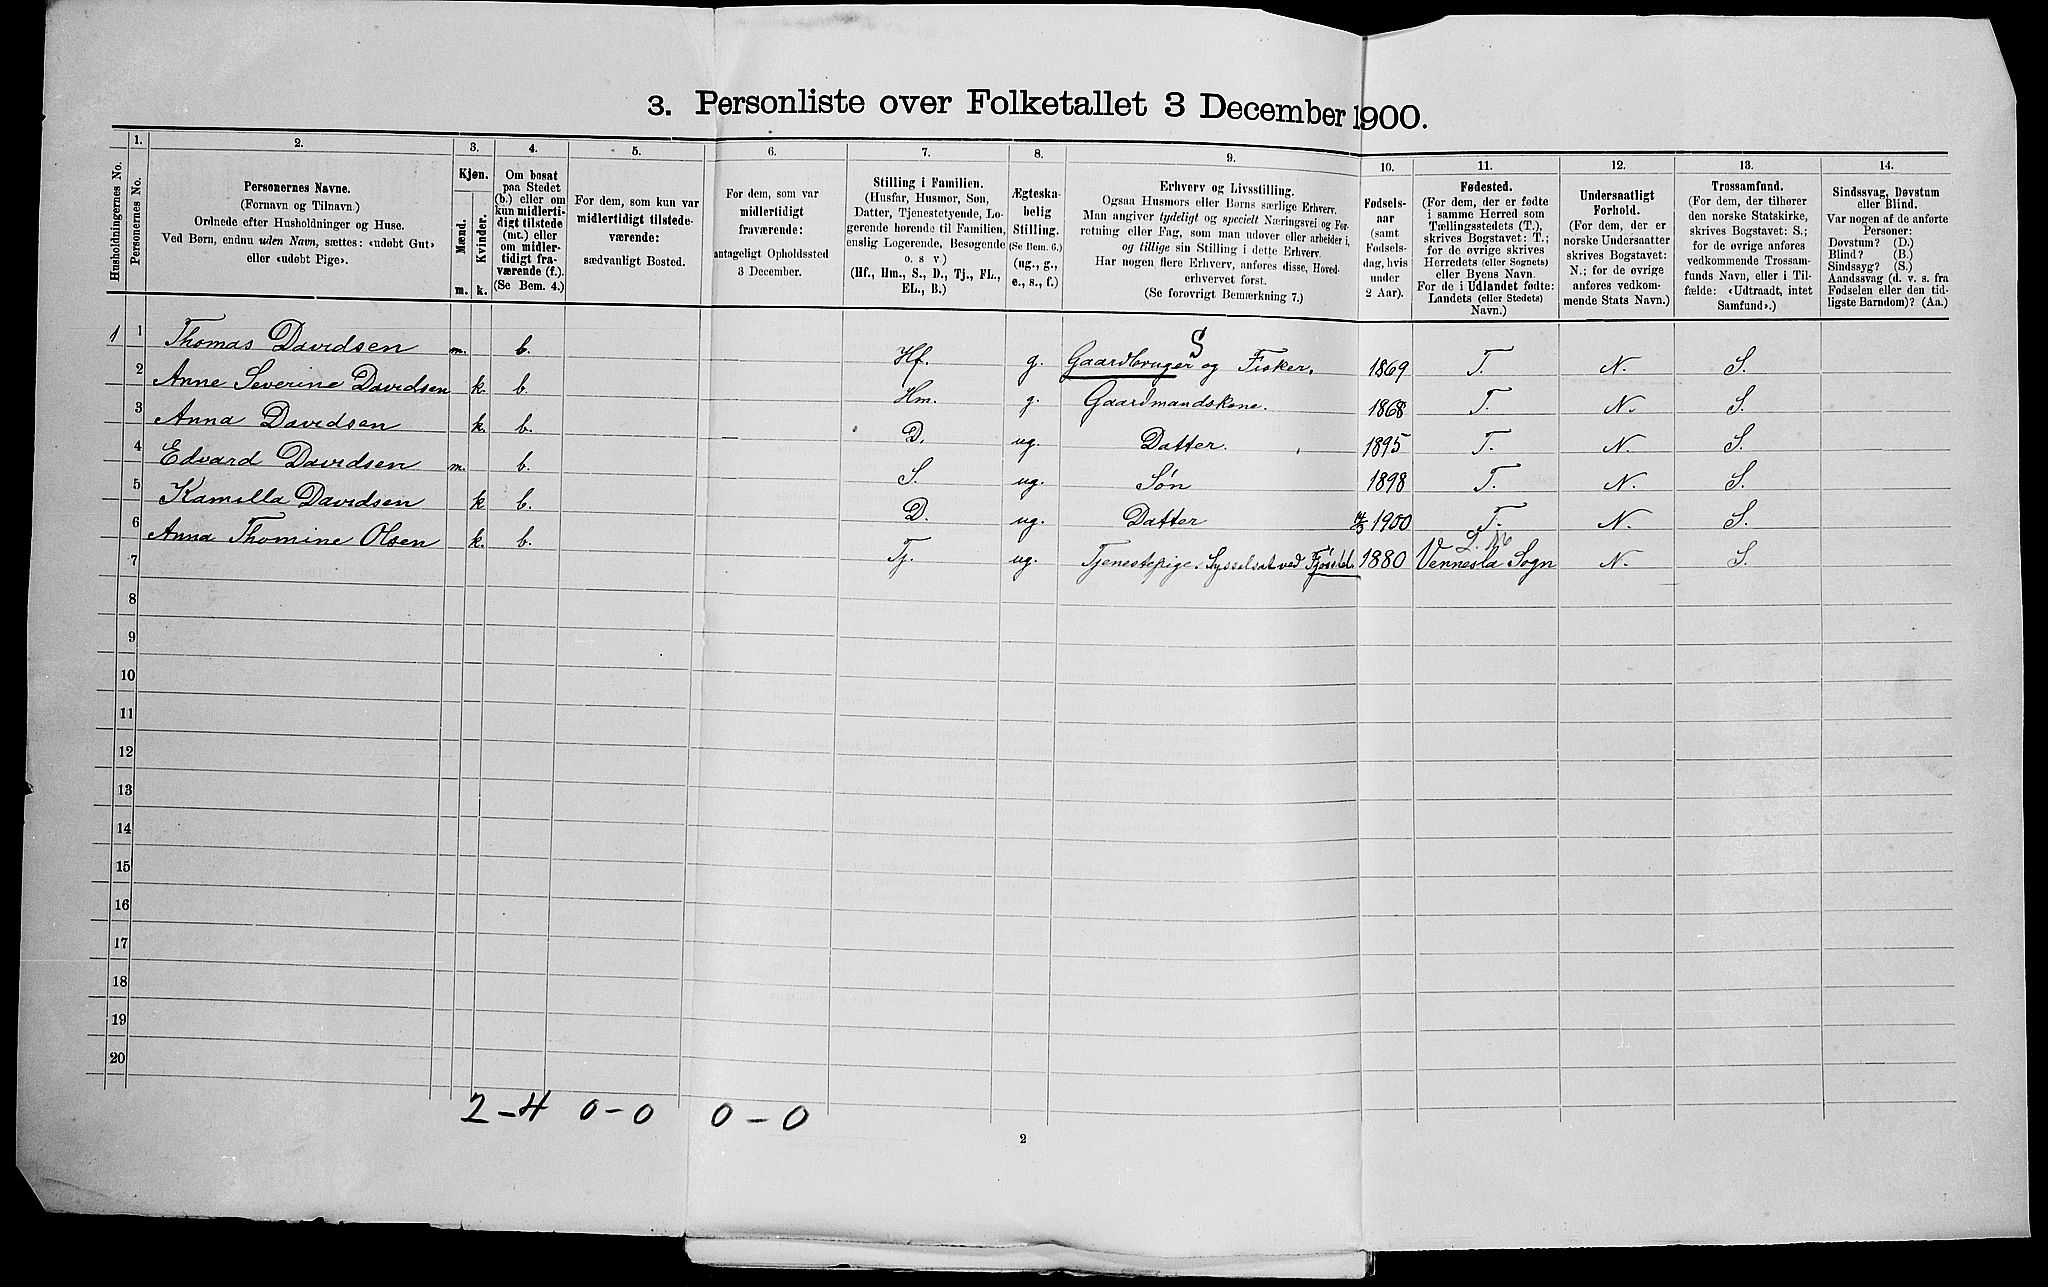 3. Personliste over Folketallet 3 December 1900.
1. 2. 3. 4. 5. 6. 7. 8. 9. 10. 11. 12. 13. 14.
Husholdningernes No.
Personernes No.
Personernes Navne.
(Fornavn og Tilnavn.)
Ordnede efter Husholdninger og Huse.
Ved Børn, endnu uden Navn, sættes: «udøbt Gut»
eller «udøbt Pige».
Kjøn.
Mænd.
Kvinder.
m. k.
Om bosat
paa Stedet
(b.) eller om
kun midlerti-
digt tilstede
(mt.) eller
om midler-
tidigt fra-
værende (f.).
(Se Bem. 4.)
For dem, som kun var
midlertidigt tilstede-
værende:
sædvanligt Bosted.
For dem, som var
midlertidigt
fraværende:
antageligt Opholdssted
3 December.
Stilling i Familien.
(Husfar, Husmor, Søn,
Datter, Tjenestetyende, Lo-
gerende hørende til Familien,
enslig Logerende, Besøgende
o. s v.)
(Hf., Hm., S., D., Tj., FL.,
EL., B.)
Ægteska-
belig
Stilling.
(Se Bem. 6.)
(ug., g.,
e., s., f.)
Erhverv og Livsstilling.
Ogsaa Husmors eller Børns særlige Erhverv.
Man angiver tydeligt og specielt Næringsvei og For-
retning eller Fag, som man udøver eller arbeider i,
og tillige sin Stilling i dette Erhverv.
Har nogen flere Erhverv, anføres disse, Hoved-
erhvervet først.
(Se forøvrigt Bemærkning 7.)
Fødsels-
aar
(samt
Fødsels-
dag, hvis
under
2 Aar).
Fødested.
(For dem, der er fødte
i samme Herred som
Tællingsstedets (T.),
skrives Bogstavet: T.;
for de øvrige skrives
Herredets (eller Sognets)
eller Byens Navn.
For de i Udlandet fødte:
Landets (eller Stedets)
Navn.)
Undersaatligt
Forhold.
(For dem, der er
norske Undersaatter
skrives Bogstavet:
N.; for de øvrige
anføres vedkom-
mende Stats Navn.)
Trossamfund.
(For dem, der tilhører
den norske Statskirke,
skrives Bogstavet: S.;
for de øvrige anføres
vedkommende Trossam-
funds Navn, eller i Til-
fælde: «Udtraadt, intet
Samfund».)
Sindssvag, Døvstum
eller Blind.
Var nogen af de anførte
Personer:
Døvstum? (D.)
Blind? (B.)
Sindssyg? (S.)
Aandssvag (d. v. s. fra
Fødselen eller den tid-
ligste Barndom)? (Aa.)
S
1 1 Thomas Davidsen m. b. Hf. g. Gaardbruger og Fisker. 1869 T. N. S.
2 Anne Severine Davidsen k. b. Hm. g. Gaardmandskone. 1868 T. N. S.
3 Anna Davidsen k. b. D. ug. Datter. 1895 T. N. S.
4 Edvard Davidsen m. b. S. ug. Søn 1898 T. N. S.
5 Kamilla Davidsen k b. D. ug. Datter 1900 T. N. S.
6 Anna Thomine Olsen k. b. Tj. ug. Tjenestepige. Sysselsat ved Fjøsstel. 1880 Vennesla Sogn N. S.
7
8
9
10
11
12
13
14
15
16
17
18
19
20
2-4 0-0 0-0
2